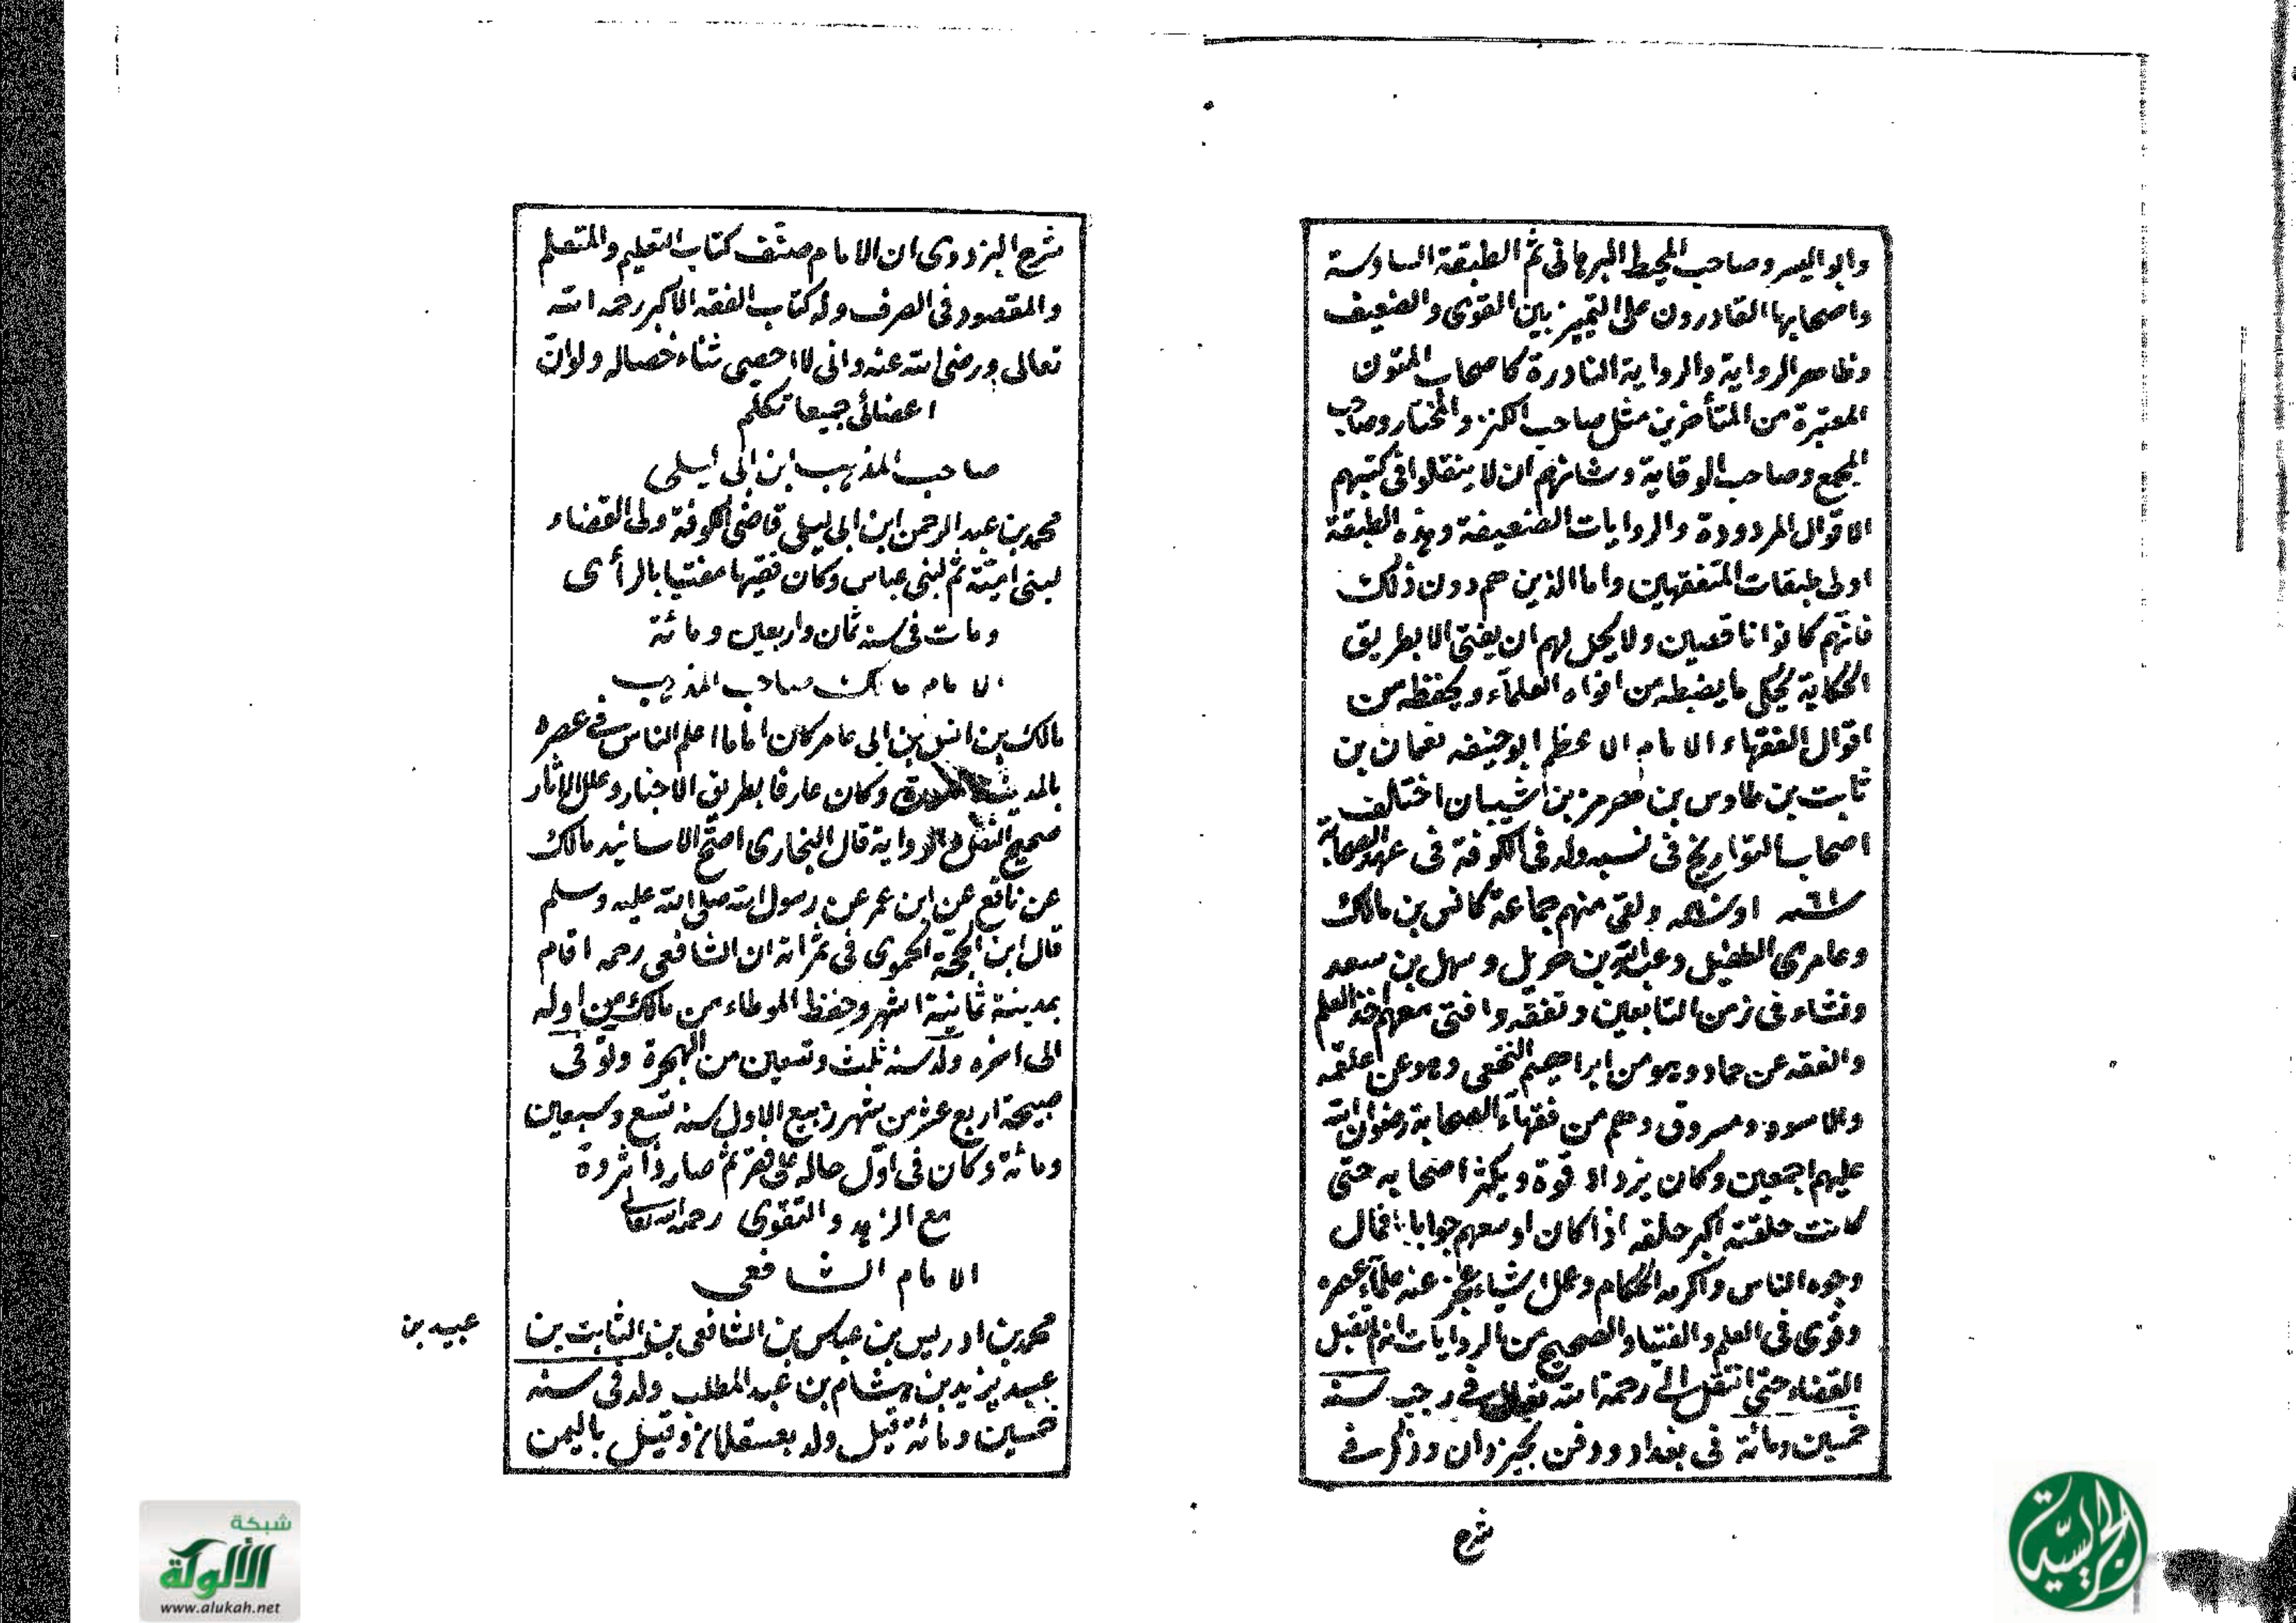 وابو اليسر وصاحب المحيط البرهانى ثم الطبقة السادسة
واصحابها القادرون على التمييز بين القوى والضعيف
وظاهر الرواية والرواية النادرة كاصحاب المتون
المعتبرة من المتأخرين مثل صاحب الكنز والمختار وصاحب
المجمع وصاحب الوقاية وشانهم ان لا ينقلوا فى كتبهم
الاقوال المردودة والروايات الضعيفة وهذه الطبقة
اولى طبقات المتفقهين واما الذين هم دون ذلك
فانهم كانوا ناقصين ولا يحل لهم ان يفتى الا بطريق
الحكاية يحكى ما يضبطه من افواه العلماء ويحفظه من
اقوال الفقهاء الامام الاعظم ابو حنيفه نعمان بن
ثابت بن طاوس بن هرمز بن شيبان اختالف
اصحاب التواريخ فى نسبه ولد فى الكوفة فى عهد الصحابة
ولقى منهم جماعة كانس بن مالك
وعامرى الطفيل وعبد الله بن وسهل بن سعد
ونشاء فى زمن التابعين وتفقه وافتى معهم اخذ العلم
والفقه عن حماد وهو من ابراهيم النخعى وهو عن علقمه
والاسود ومسروق وهم من فقهاء الصحابة رضوان الله
عليهم اجمعين وكان يزداد قوة ويكثر اصحابه حتى
كانت حلقته اكبر حلقه اذا كان اوسعهم جوابا فمال
وجوه الناس واكرمه الحكام وعمل شياء عجز عنه علماء عصره
وقوى فى العلم والفتيا والصحيح من الروايات انه لم تقبل
القضاء حتى انتقل الى رحمة الله تعالى فى رجب سنة
خمسين ومائة فى بغداد ودفن بخيزران وذكر فى
شرح
شرح البزدوى ان الامام صنف كتاب التعليم والمتعلم
والمقصود فى الصرف وله كتاب الفقه الاكبر رحمه الله
تعالى ورضى الله عنه وانى لا احصى ثناء خصاله ولو ان
اعضائى جميعا تكلم
صاحب المذهب ابن ابى ليلى
محمد بن عبد الرحمن ابن ابى ليلى قاضى الكوفة ولى القضاء
لبنى امية ثم لبنى عباس وكان فقيها مفتيا بالرأى
ومات فى سنه ثمان واربعين ومائة
الامام مالك صاحب المذهب
مالك بن انس بن ابى عامر كان اماما اعلم الناس فى عصره
وكان عارفا بطريق الاخبار وعلل الاثار
صحيح النقل والرواية قال البخارى اصح الاسانيد مالك
عن نافع عن ابن عمر عن رسول الله صلى الله عليه وسلم
قال ابن الحجة الحموى فى ثمراته ان الشافعى رحمه اقام
بمدينة ثمانية اشهر وحفظ الموطاء من مالك من اوله
الى اخره ولد سنه ثلث وتسعين من الهجرة وتوفى
صبيحة اربع عشر من شهر ربيع الاول سنه تسع وسبعين
ومائة وكان فى اول حاله على فقر ثم صار ذا ثروة
مع الزهد والتقوى رحمه الله تعالى
الامام الشافعى
محمد بن ادريس بن عباس بن الشافعى بن الثابت بن
عبيد بن
عبيد يزيد بن هشام بن عبد المطلب ولد فى سنه
خمسين ومائة قيل ولد بعسقلان وقيل باليمن
شبكة
الألوكة
www.alukah.net